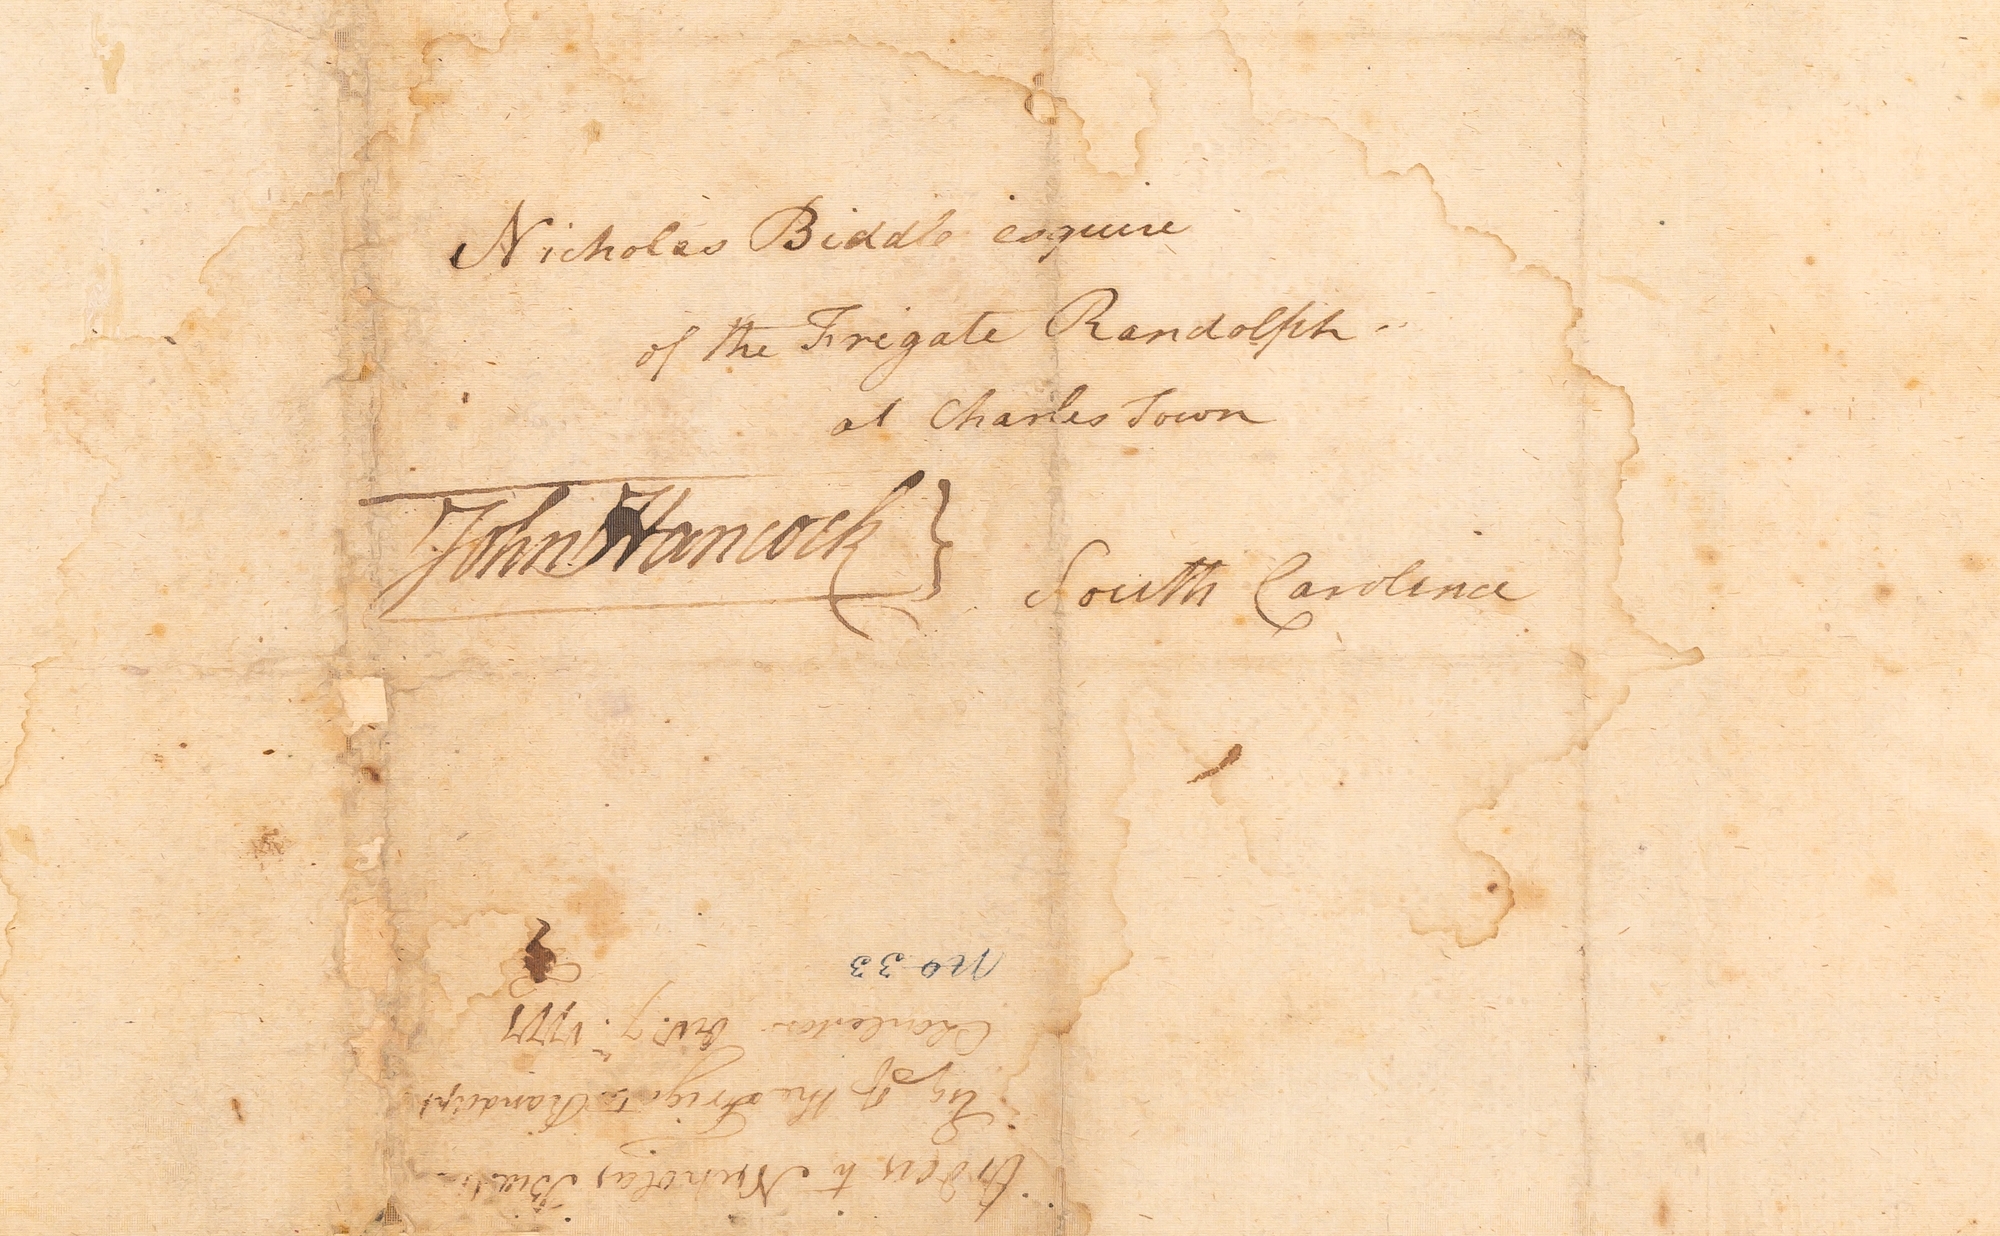 Nicholas Biddle esquire
of the Frigate Randolph
at Charles Town
John Hancock }
South Carolina
Orders to Nicholas
Esq of the Frigate Randolph
Charleston 1777
No 33